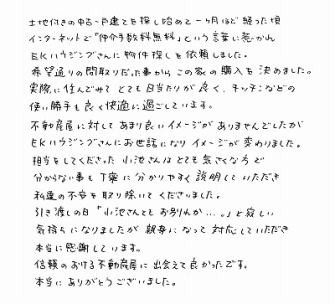 土地付きの中古一戸建てを探し始めて一ヶ月ほど経った頃
インターネットで「仲介手数料無料」という言葉に惹かれ
EKハウジングさんに物件探しを依頼しました。
希望通りの間取りだった事から、この家の購入を決めました。
実際に住んでみてとても日当たりが良く、キッチンなどの
使い勝手も良く快適に過ごしています。
不動産屋に対してあまり良いイメージがありませんでしたが
EKハウジングさんにお世話になりイメージが変わりました。
担当をしてくださった小池さんはとても気さくな方で
分からない事も丁寧に分かりやすく説明していただき
私達の不安を取り除いてくださいました。
引き渡しの日「小池さんともお別れか…。」と寂しい
気持ちになりましたが親身になって対応していただき
本当に感謝しています。
信頼のおける不動産屋に出会えて良かったです。
本当にありがとうございました。